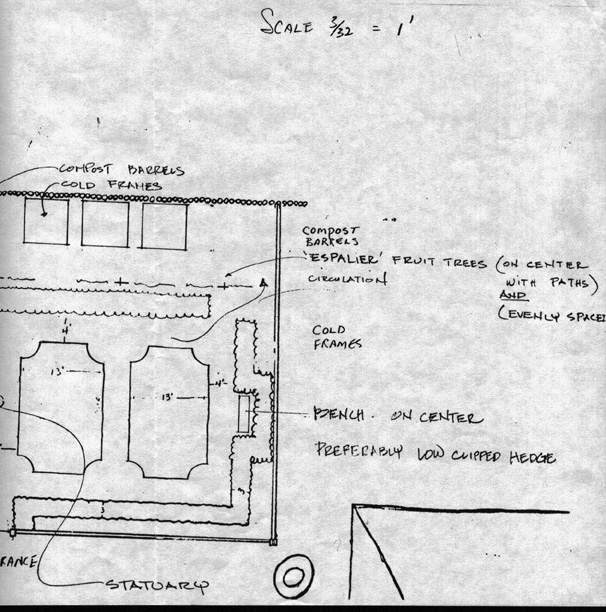 SCALE 3/32 = 1'
COMPOST BARRELS
COLD FRAMES
COMPOST
BARRELS
'ESPALIER' FRUIT TREES (ON CENTER
WITH PATHS)
AND
(EVENLY SPACE
CIRCULATION
COLD
FRAMES
4'
13'
13'
4'
BENCH - ON CENTER
PREFERABLY LOW CLIPPED HEDGE
3
3
RANCE
STATUARY